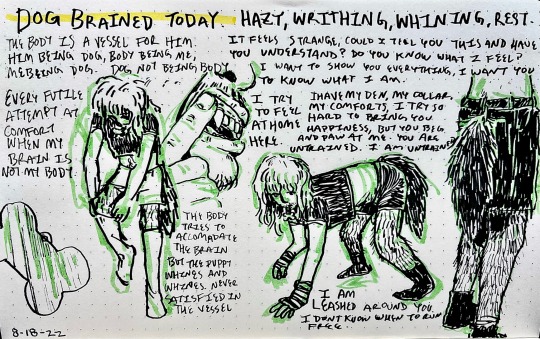 DOG BRAINED TODAY HAZY, WRITHING, WHINING, REST.
THE BODY IS A VESSEL FOR HIM.
HIM BEING DOG, BODY BEING ME,
ME BEING DOG. DOG NOT BEING BODY
EVERY FUTILE
ATTEMPT AT
COMFORT
WHEN MY
BRAIN IS
NOT MY BODY.
IT FEELS STRANGE, COULD I TELL YOU THIS AND HAVE
YOU UNDERSTAND? DO YOU KNOW WHAT I FEEL?
I WANT TO SHOW YOU EVERYTHING, I WANT YOU
TO KNOW WHAT I AM.
I TRY
TO FEEL
AT HOME
HERE.
I HAVE MY DEN, MY COLLAR,
MY COMFORTS, I TRY SO
HARD TO BRING YOU
HAPPINESS, BUT YOU BEG
AND PAW AT ME. YOU ARE
UNTRAINED. I AM UNTRAINED
THE BODY
TRIES TO
ACCOMADATE
THE BRAIN
BUT THE PUPPY
WHINES AND
WHINES. NEVER
SATISFIED IN
THE VESSEL
I AM
LEASHED AROUND YOU.
I DON'T KNOW WHEN TO RUN
FREE.
8-18-22